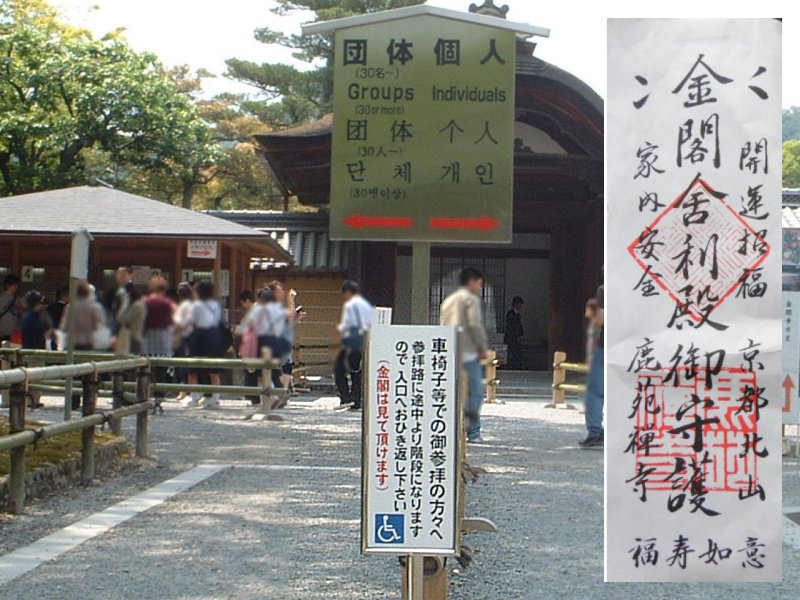 団体 個人
(30名~)
Groups Individuals
(30 or more)
団体 个人
(30人~)
단체 개인
(30명이상)
車椅子等での御参拝の方々へ
参拝路に途中より階段になります
ので 入口へおひき返し下さい
(金閣は見て頂けます)
開運招福 京都北山
金閣舎利殿御守護
家内安全 鹿苑禅寺
福寿如意